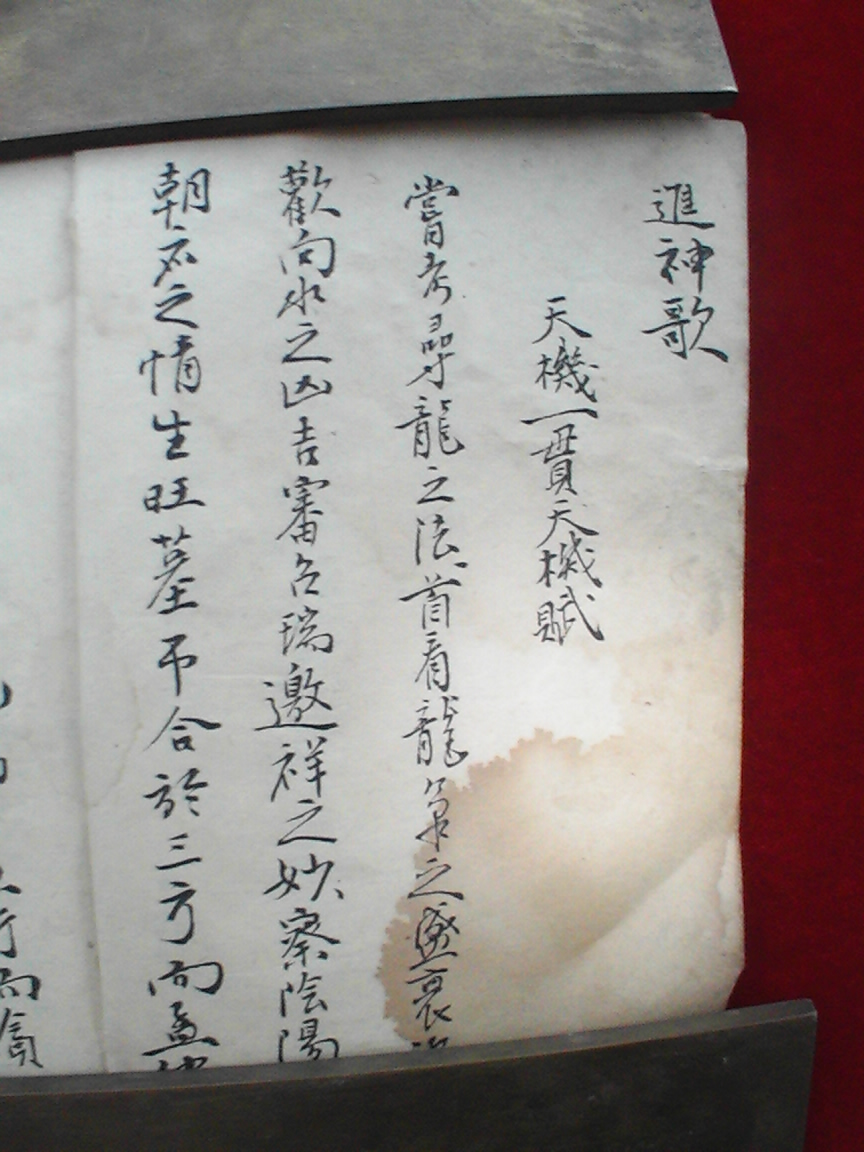 進神歌
天機一貫天機賦
嘗考尋龍之法首看龍氣之盛衰
歡向水之凶吉審召瑞邀祥之妙察陰陽
朝不之情生旺墓吊合於三方向孟
行向貪